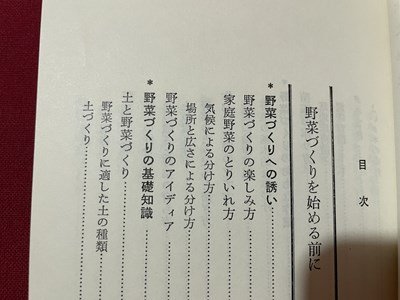 目次
野菜づくりを始める前に
*野菜づくりへの誘い
野菜づくりの楽しみ方
家庭野菜のとりいれ方
気候による分け方
場所と広さによる分け方
野菜づくりのアイディア
*野菜づくりの基礎知識
土と野菜づくり
野菜づくりに適した土の種類
土づくり